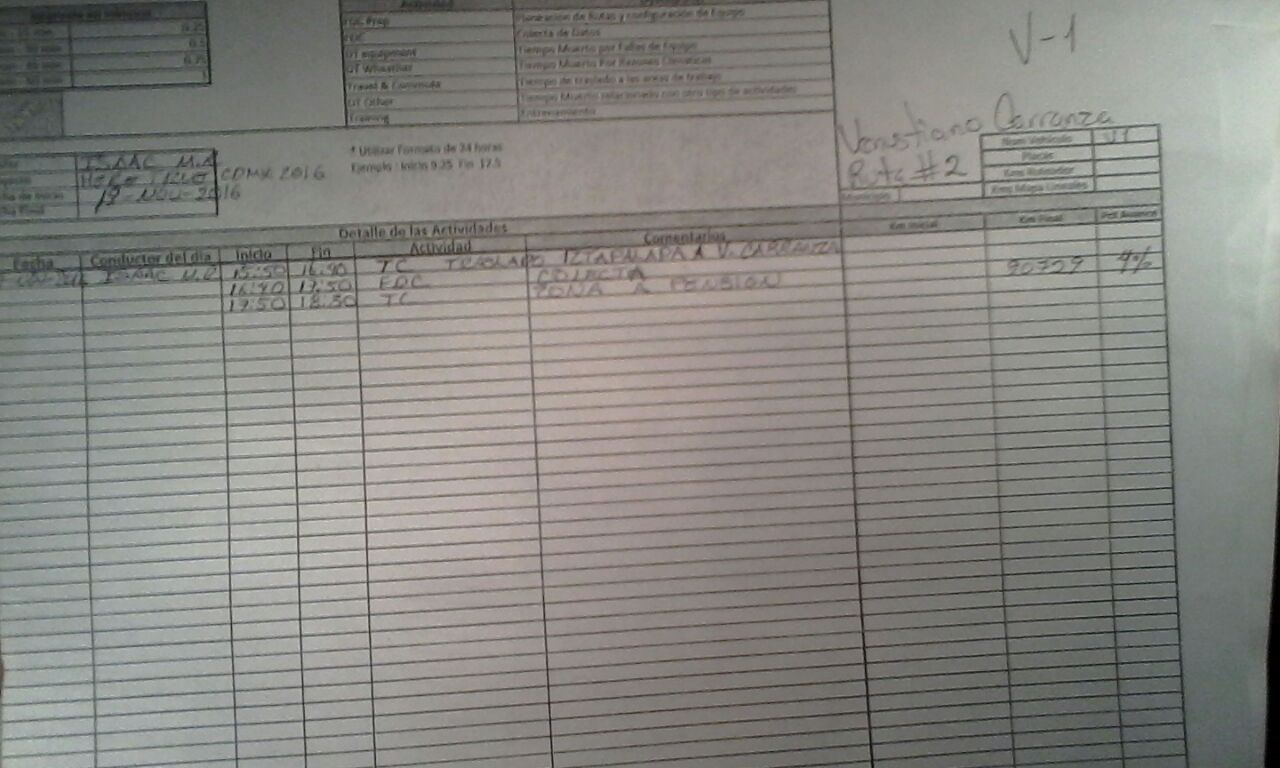 V-1
0.25
0.5
0.75
1
Actividad
EDC Prep Planeacion de Rutas y configuración de Equipo
EDC Colecta de Datos
DT equipment Tiempo Muerto por Fallas de Equipo
DT Wheather Tiempo Muerto Por Razones Climaticas
Travel & Commute Tiempo de traslado a las areas de trabajo
DT Other Tiempo Muerto relacionado con otro tipo de actividades
Training Entrenamiento
Venustiano Carranza
Ruta #2
Num Vehículo V1
Placas
Kms Ruteador
Kms Mapa Lineales
Municipio
ISAAC M.
CDMX 2016
19-NOV-2016
* Utilizar Formato de 24 horas
Ejemplo : Inicio 9.25 Fin 17.5
Detalle de las Actividades
Fecha Conductor del día Inicio Fin Actividad Comentarios Km Inicial Km Final Pct Avance
ISAAC 15:50 16:40 TC TRASLADO IZTAPALAPA A V. CARRANZA
16:40 17:50 EDC COLECTA 90729 4%
17:50 18:50 TC ZONA A PENSION